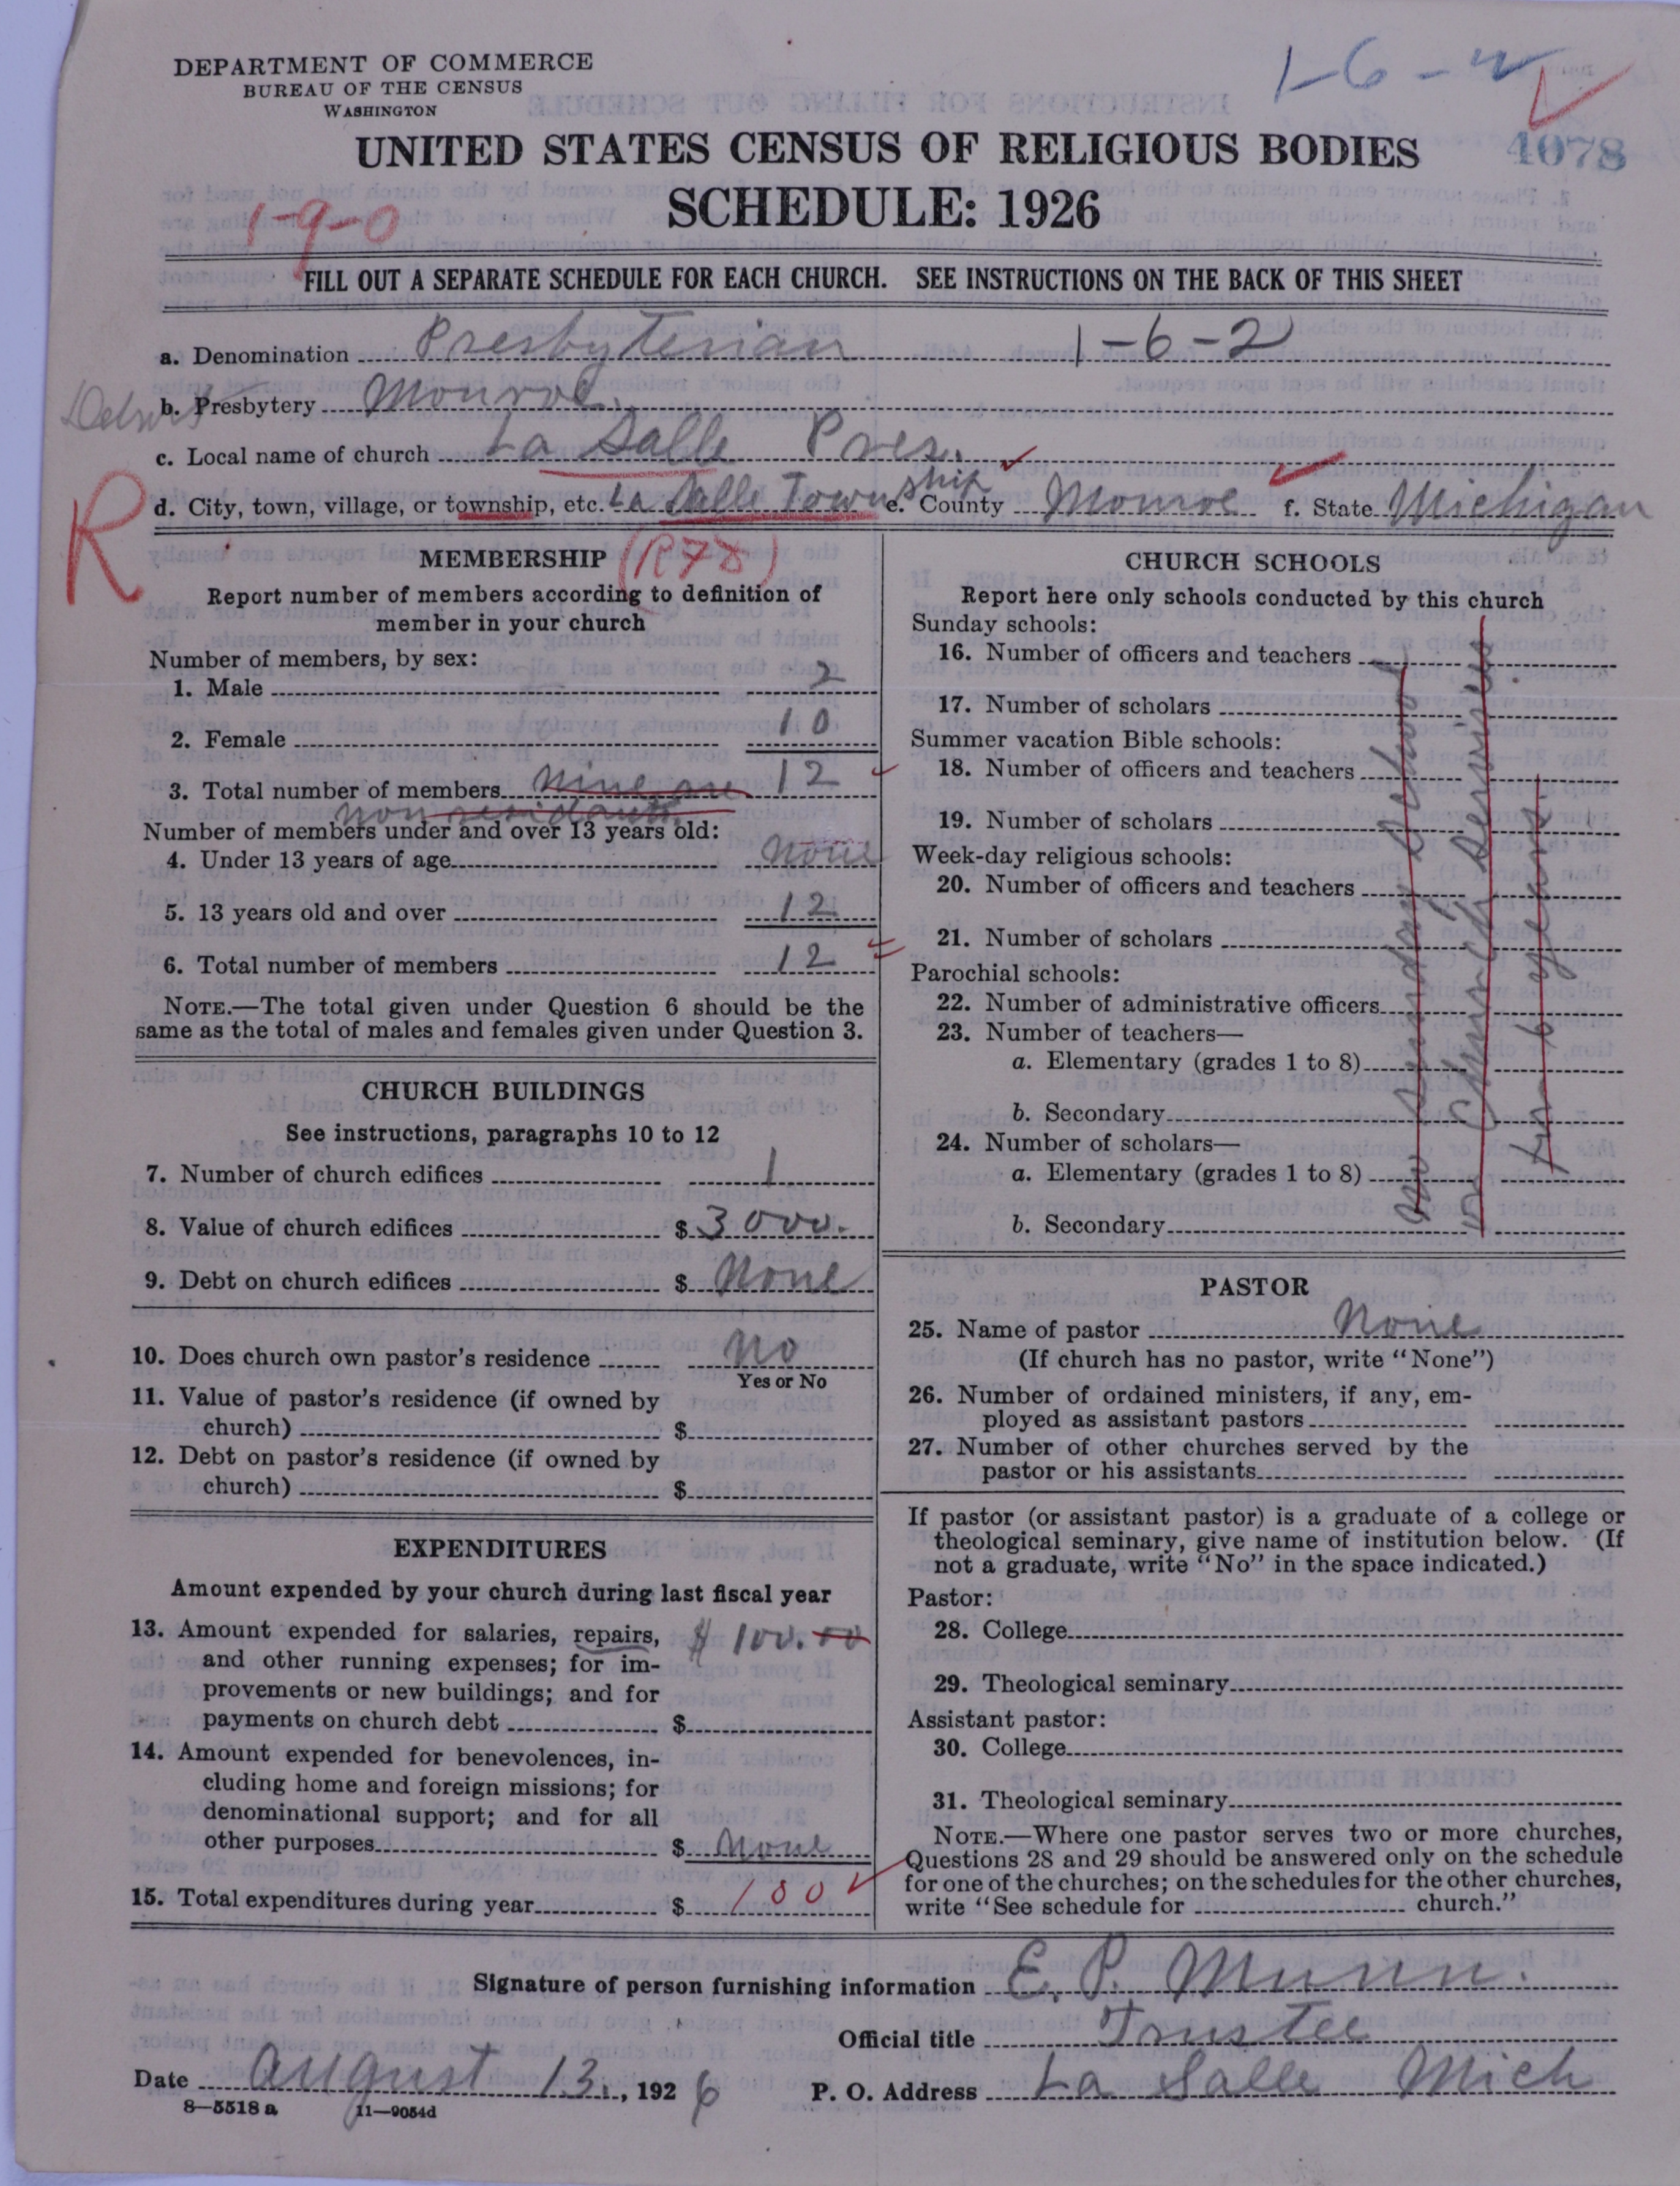 DEPARTMENT OF COMMERCE
BUREAU OF THE CENSUS
WASHINGTON
1-6-2
4078
UNITED STATES CENSUS OF RELIGIOUS BODIES
SCHEDULE: 1926
1-9-0
FILL OUT A SEPARATE SCHEDULE FOR EACH CHURCH. SEE INSTRUCTIONS ON THE BACK OF THIS SHEET
a. Denomination Presbyterian 1-6-2
b. Presbytery Monroe
c. Local name of church La Salle Pres.
d. City, town, village, or township, etc. La Salle Township e. County Monroe f. State Michigan
R
MEMBERSHIP (R78)
Report number of members according to definition of
member in your church
Number of members, by sex:
1. Male 2
2. Female 10
3. Total number of members nine are 12
non residants
Number of members under and over 13 years old:
4. Under 13 years of age none
5. 13 years old and over 12
6. Total number of members 12
NOTE.—The total given under Question 6 should be the
same as the total of males and females given under Question 3.
CHURCH BUILDINGS
See instructions, paragraphs 10 to 12
7. Number of church edifices 1
8. Value of church edifices $ 3000.
9. Debt on church edifices $ None
10. Does church own pastor's residence No
Yes or No
11. Value of pastor's residence (if owned by
church) $
12. Debt on pastor's residence (if owned by
church) $
EXPENDITURES
Amount expended by your church during last fiscal year
13. Amount expended for salaries, repairs, $ 100.00
and other running expenses; for im-
provements or new buildings; and for
payments on church debt $
14. Amount expended for benevolences, in-
cluding home and foreign missions; for
denominational support; and for all
other purposes $ None
15. Total expenditures during year $ 100
CHURCH SCHOOLS
Report here only schools conducted by this church
Sunday schools:
16. Number of officers and teachers
17. Number of scholars
Summer vacation Bible schools:
18. Number of officers and teachers
19. Number of scholars
Week-day religious schools:
20. Number of officers and teachers
21. Number of scholars
Parochial schools:
22. Number of administrative officers
23. Number of teachers—
a. Elementary (grades 1 to 8)
b. Secondary
24. Number of scholars—
a. Elementary (grades 1 to 8)
b. Secondary
No Sunday School
or Church Services
for 6 years.
PASTOR
25. Name of pastor None
(If church has no pastor, write "None")
26. Number of ordained ministers, if any, em-
ployed as assistant pastors
27. Number of other churches served by the
pastor or his assistants
If pastor (or assistant pastor) is a graduate of a college or
theological seminary, give name of institution below. (If
not a graduate, write "No" in the space indicated.)
Pastor:
28. College
29. Theological seminary
Assistant pastor:
30. College
31. Theological seminary
NOTE.—Where one pastor serves two or more churches,
Questions 28 and 29 should be answered only on the schedule
for one of the churches; on the schedules for the other churches,
write "See schedule for church."
Signature of person furnishing information E. P. Munn.
Official title Trustee
Date August 13, 1926 P. O. Address La Salle Mich
8—5518 a 11—9054d